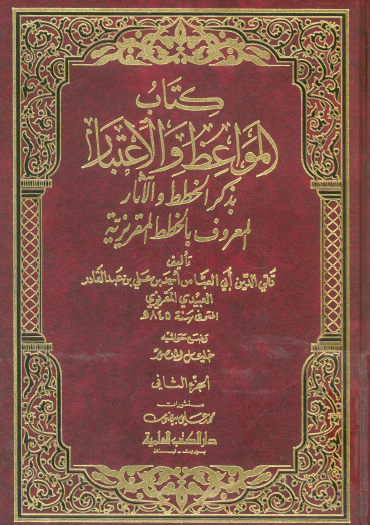 كتاب
المواعظ والاعتبار
بذكر الخطط والآثار
المعروف بالخطط المقريزية
تأليف
تقي الدين أبي العباس أحمد بن علي بن عبد القادر
العبيدي المقريزي
المتوفى سنة ٨٤٥هـ
وضع حواشيه
خليل المنصور
الجزء الثاني
منشورات
محمد علي بيضون
دار الكتب العلمية
بيروت - لبنان